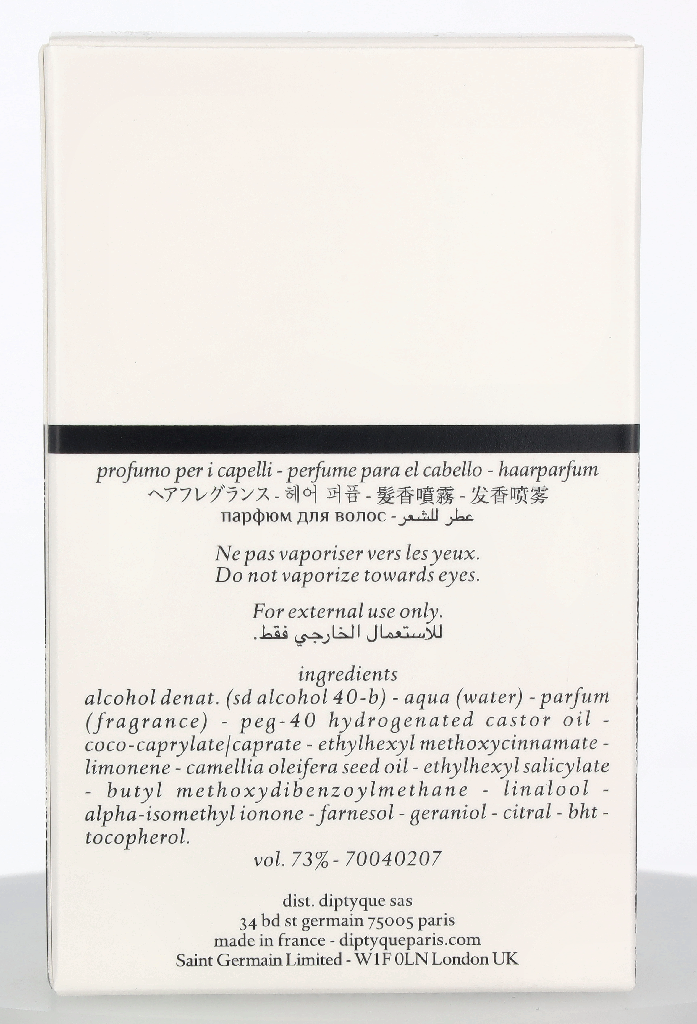 profumo per i capelli - perfume para el cabello - haarparfum
ヘアフレグランス - 헤어 퍼퓸 - 髮香噴霧 - 发香喷雾
парфюм для волос - عطر للشعر
Ne pas vaporiser vers les yeux.
Do not vaporize towards eyes.
For external use only.
للاستعمال الخارجي فقط.
ingredients
alcohol denat. (sd alcohol 40-b) - aqua (water) - parfum
(fragrance) - peg-40 hydrogenated castor oil -
coco-caprylate/caprate - ethylhexyl methoxycinnamate -
limonene - camellia oleifera seed oil - ethylhexyl salicylate
- butyl methoxydibenzoylmethane - linalool -
alpha-isomethyl ionone - farnesol - geraniol - citral - bht -
tocopherol.
vol. 73% - 70040207
dist. diptyque sas
34 bd st germain 75005 paris
made in france - diptyqueparis.com
Saint Germain Limited - W1F 0LN London UK